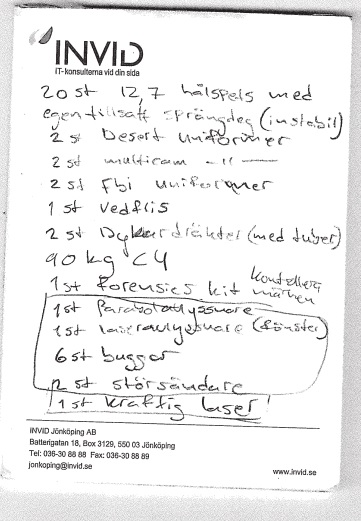 INVID
IT-konsulterna vid din sida
20 st 12,7 hålspets med
egentillsatt sprängdeg (instabil)
2 st Desert uniformer
2 st multicam -11-
2 st Fbi uniformer
1 st vedflis
2 st Dykardräkter (med tuber)
90 kg C4
1 st Forensics kit kontrollera märken
1 st Parabolavlyssnare
1 st laseravlyssnare (fönster)
6 st buggar
2 st störsändare
1 st kraftig laser!
INVID Jönköping AB
Batterigatan 18, Box 3129, 550 03 Jönköping
Tel: 036-30 88 88 Fax: 036-30 88 89
jonkoping@invid.se
www.invid.se